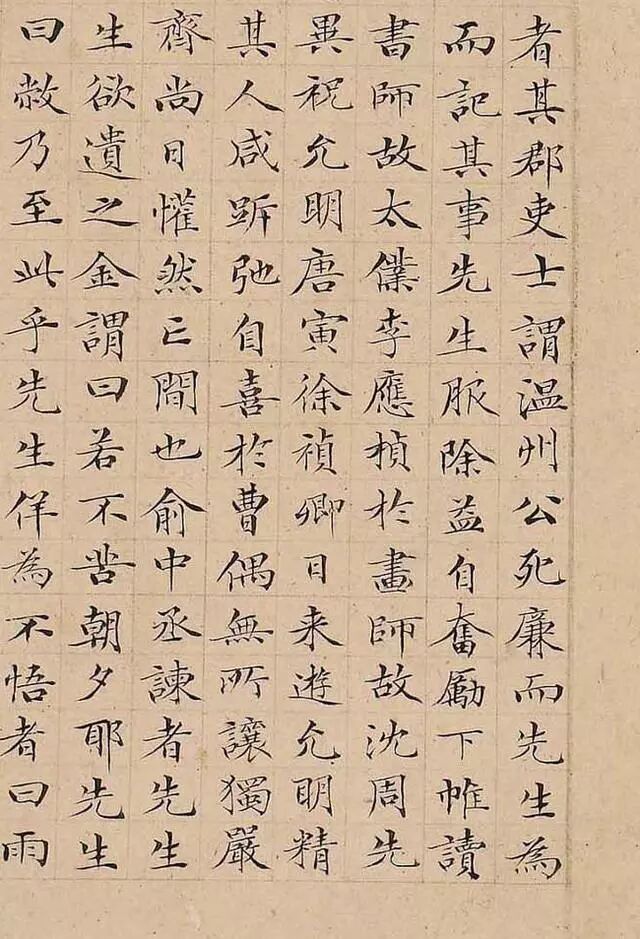 者其郡吏士謂温州公死廉而先生為
而記其事先生服除益自奮勵下帷讀
書師故太僕李應楨於畫師故沈周先
異祝允明唐寅徐禎卿日来遊允明精
其人咸跅弛自喜於曹偶無所讓獨嚴
齊尚日懽然亡間也俞中丞諫者先生
生欲遺之金謂曰若不苦朝夕耶先生
曰敝乃至此乎先生佯為不悟者曰雨